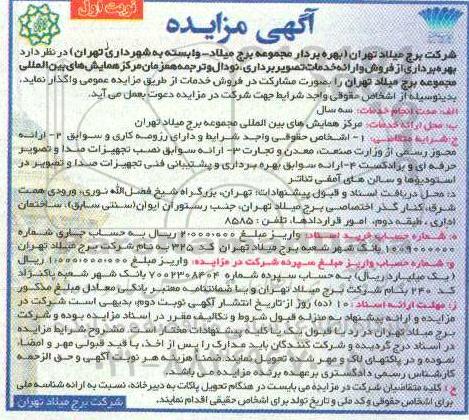 نوبت اول
آگهی مزایده
شرکت برج میلاد تهران (بهره بردار مجموعه برج میلاد- وابسته به شهرداری تهران) در نظر دارد
بهره برداری از فروش و ارائه خدمات تصویربرداری، نودال و ترجمه همزمان مرکز همایش های بین المللی
مجموعه برج میلاد تهران را بصورت مشارکت در فروش خدمات از طریق مزایده عمومی واگذار نماید.
بدینوسیله از اشخاص حقوقی واجد شرایط جهت شرکت در مزایده دعوت بعمل می آید.
الف: مدت انجام خدمات: سه سال
ب: محل ارائه خدمات: مرکز همایش های بین المللی مجموعه برج میلاد تهران
ج: شرایط متقاضی: ۱- اشخاص حقوقی واجد شرایط و دارای رزومه کاری و سوابق ۲- ارائه
مجوز رسمی از وزارت صنعت، معدن و تجارت ۳- ارائه سوابق نصب تجهیزات صدا و تصویر
حرفه ای و برادکست ۴- ارائه سوابق بهره برداری و پشتیبانی فنی تجهیزات صدا و تصویر در
استودیوها و سالن های آمفی تئاتر
د: محل دریافت اسناد و قبول پیشنهادات: تهران، بزرگراه شیخ فضل الله نوری، ورودی همت
شرق، کنار گذر اختصاصی برج میلاد تهران، جنب رستوران ایوان (سنتی سابق)، ساختمان
اداری، طبقه دوم، امور قراردادها، تلفن: ۸۵۸۵
ه: شماره حساب خرید اسناد: واریز مبلغ ۲،۰۰۰،۰۰۰ ریال به حساب جاری شماره
بانک شهر شعبه برج میلاد تهران کد ۳۲۵ به نام شرکت برج میلاد تهران
و: شماره حساب واریز مبلغ سپرده شرکت در مزایده: واریز مبلغ ۱،۰۰۰،۰۰۰،۰۰۰ ریال
(یک میلیارد ریال) به حساب سپرده شماره ۷۰۰۲۳۰۸۴۰۴ بانک شهر شعبه پاکنژاد
کد ۲۴۰ بنام شرکت برج میلاد تهران و یا ضمانتنامه معتبر بانکی معادل مبلغ مذکور
ز: مهلت ارائه اسناد: ۱۰ (ده) روز از تاریخ انتشار آگهی نوبت دوم، بدیهی است شرکت در
مزایده و ارائه پیشنهاد به منزله قبول شروط و تکالیف مقرر در اسناد مزایده بوده و شرکت
برج میلاد تهران در رد یا قبول هر یک از پیشنهادات مختار است. مشروح شرایط مزایده
در اسناد درج گردیده و شرکت کنندگان باید مدارک را پس از اخذ، با قید قبولی مهر و امضاء
نموده و در پاکتهای لاک و مهر شده تحویل نمایند. ضمناً هزینه هر نوبه آگهی و حق الزحمه
کارشناس رسمی دادگستری بر عهده برنده مزایده می باشد.
ح: کلیه متقاضیان شرکت در مزایده می بایست در هنگام تحویل پاکات به دبیرخانه، نسبت به ارائه شناسه ملی
برای اشخاص حقوقی و کد ملی و تاریخ تولد برای اشخاص حقیقی اقدام نمایند.
شرکت برج میلاد تهران